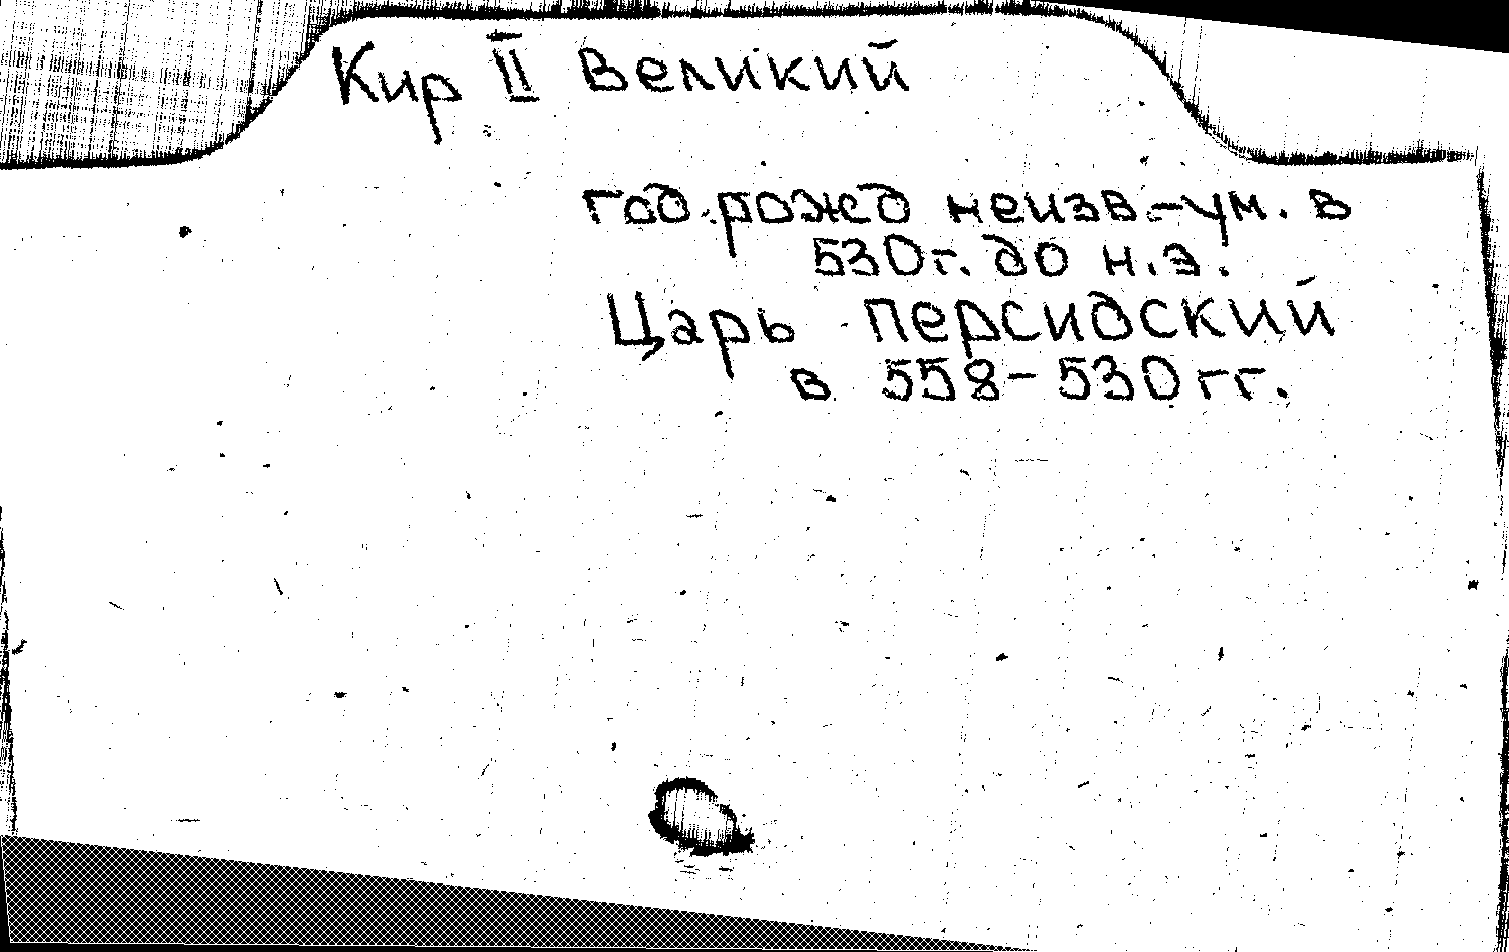 Кир II Великий
год.рожд неизв.-ум. в
530г. до н.э.
Царь персидский
в 558-530гг.